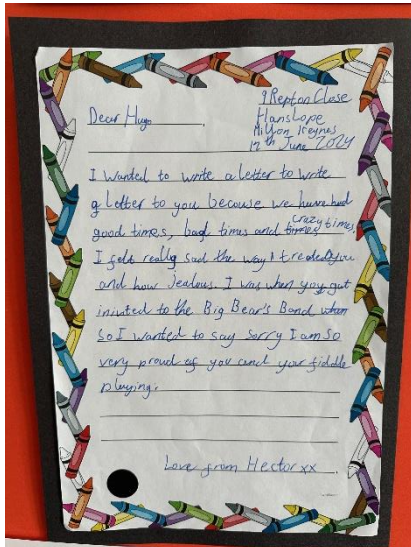 9 Repton Close
Dear Hugo Hanslope
Milton Keynes
12th June 2024
I wanted to write a letter to write
a letter to you because we have had
good times, bad times and times crazy times.
I felt really sad the way I treated you
and how Jealous. I was when you got
invited to the Big Bear's Band when
So I wanted to say sorry I am so
very proud of you and your fiddle
playing.
Love from Hector xx